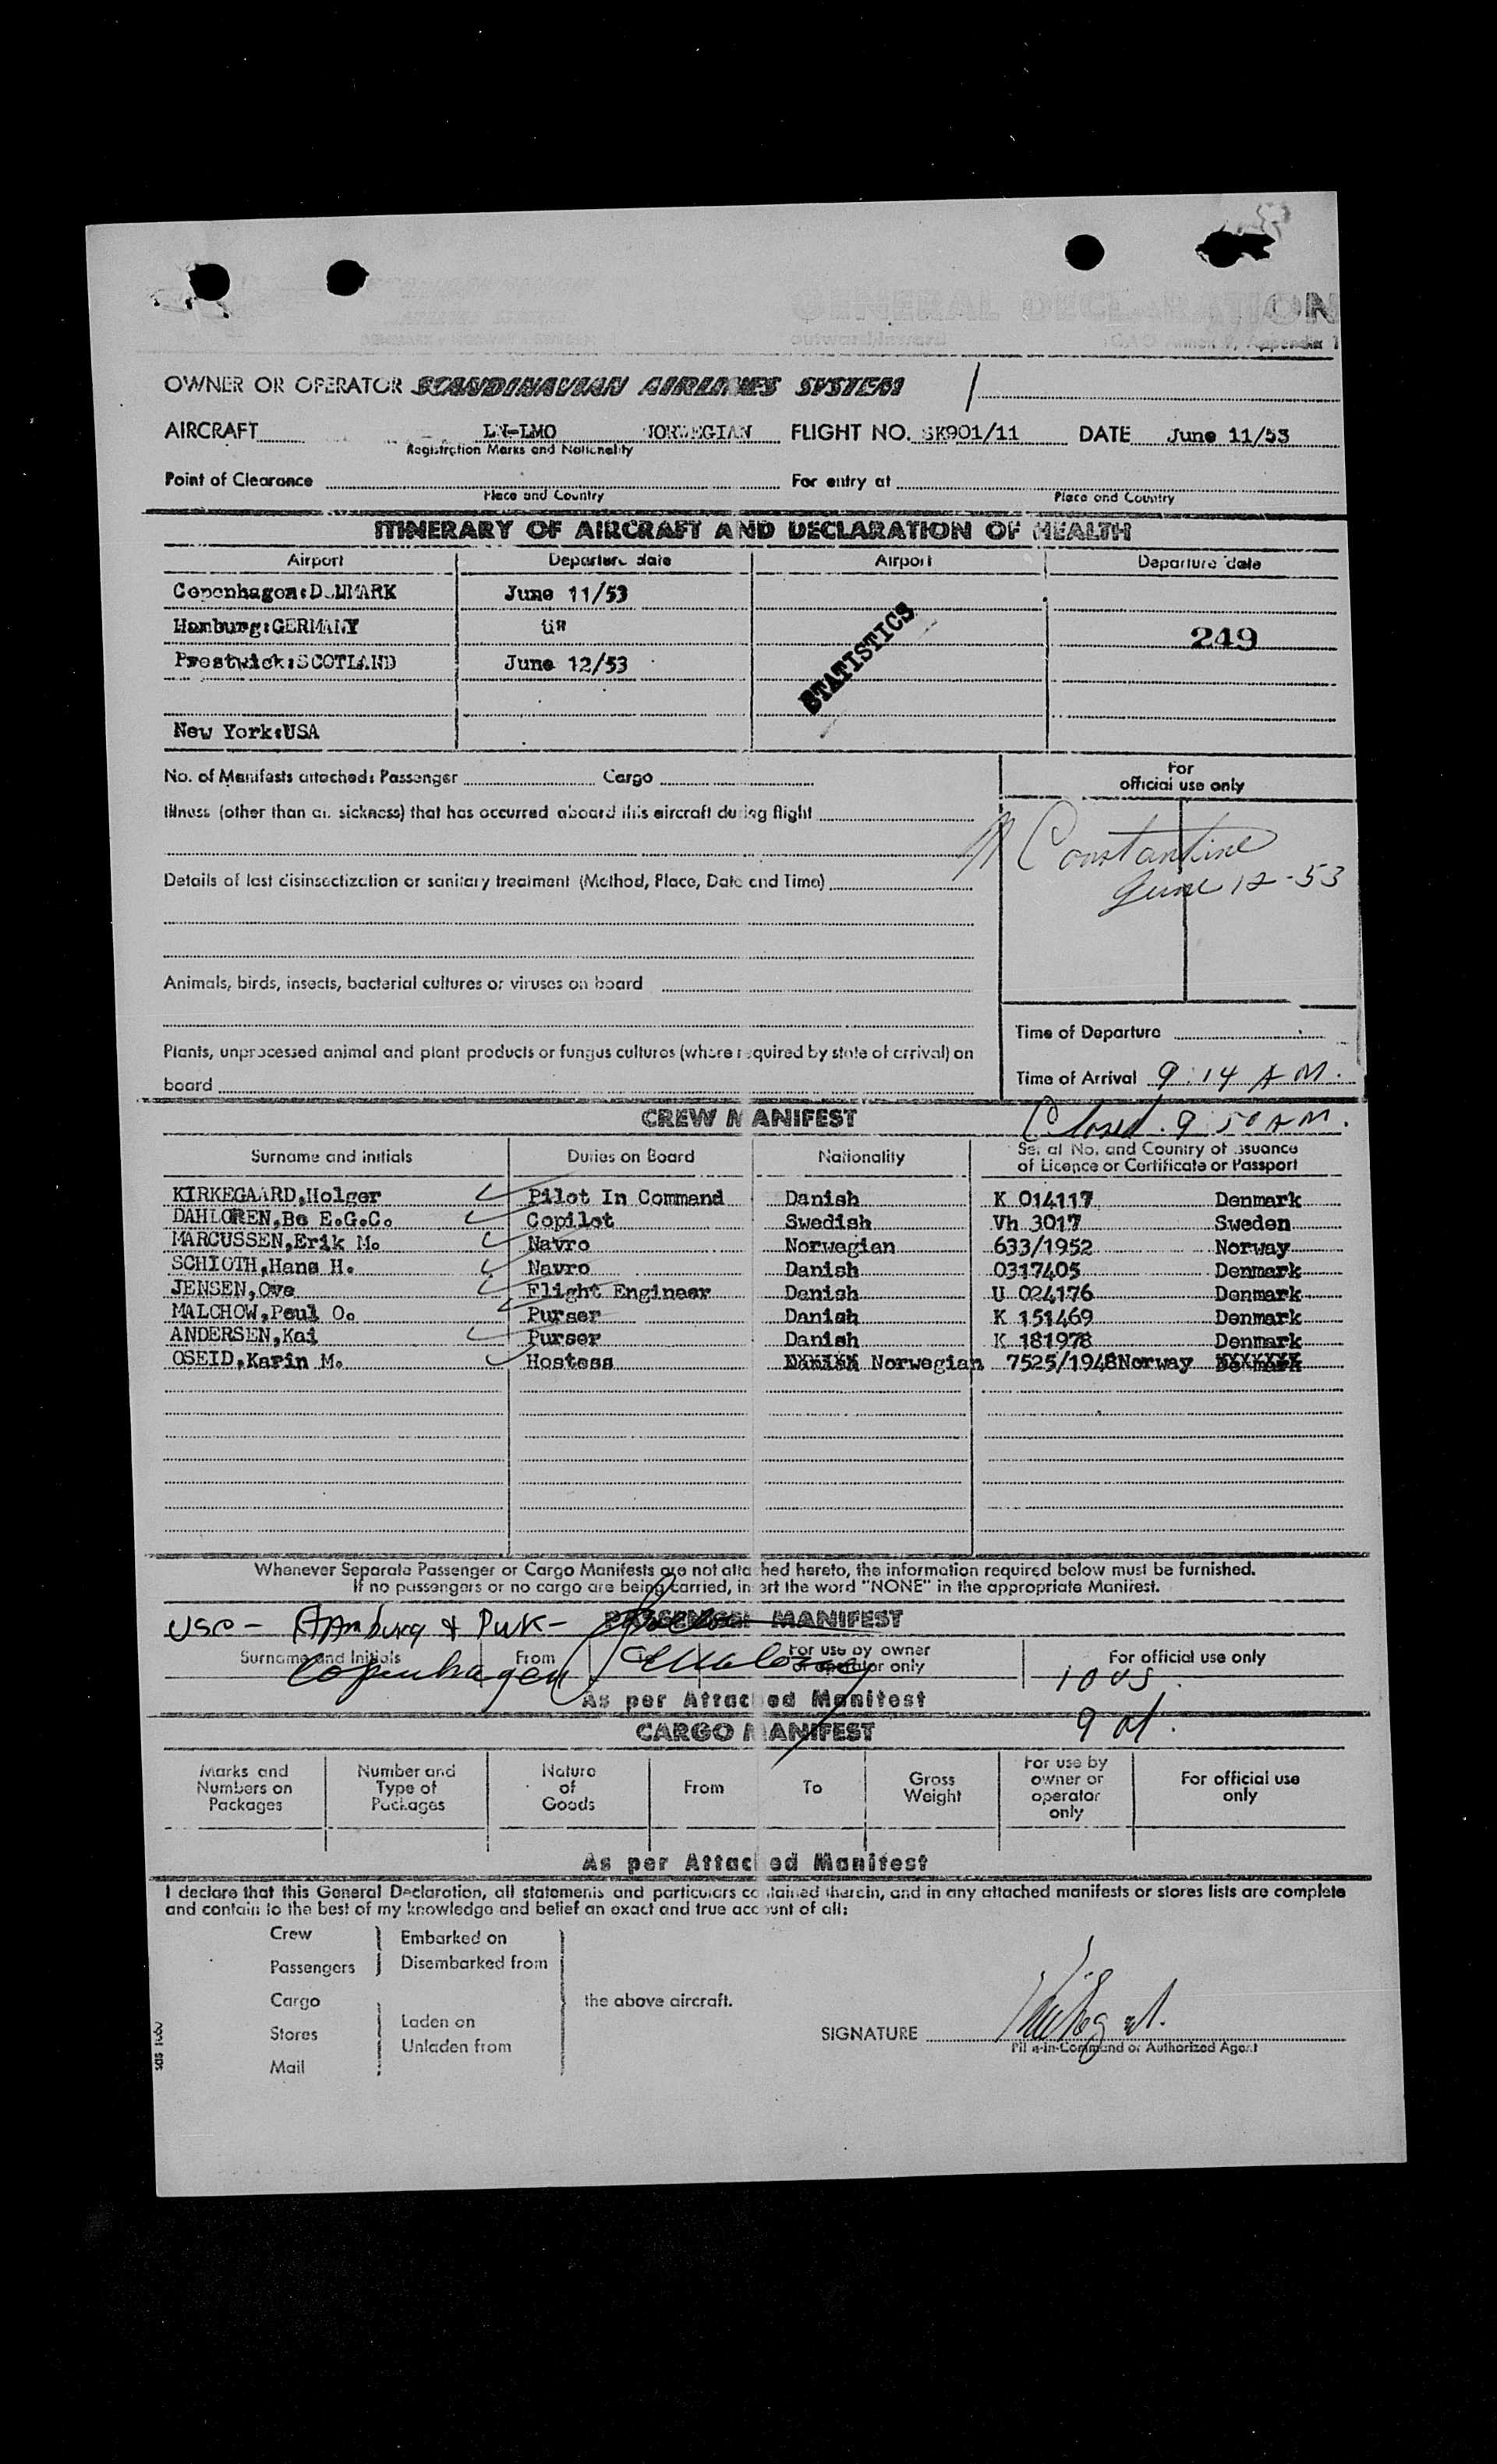 GENERAL DECLARATION
(outward/inward) ICAO Annex 9, Appendix 1
OWNER OR OPERATOR SCANDINAVIAN AIRLINES SYSTEM
AIRCRAFT LN-LMO NORWEGIAN FLIGHT NO. SK901/11 DATE June 11/53
Registration Marks and Nationality
Point of Clearance For entry at
Place and Country Place and Country
ITINERARY OF AIRCRAFT AND DECLARATION OF HEALTH
Airport Departure date Airport Departure date
Copenhagen:DENMARK June 11/53
Hamburg:GERMANY "" 249
Prestwick:SCOTLAND June 12/53
STATISTICS
New York:USA
No. of Manifests attached: Passenger Cargo
For official use only
Illness (other than air sickness) that has occurred aboard this aircraft during flight
Constantine
June 12-53
Details of last disinsectization or sanitary treatment (Method, Place, Date and Time)
Animals, birds, insects, bacterial cultures or viruses on board
Time of Departure
Plants, unprocessed animal and plant products or fungus cultures (where required by state of arrival) on
board
Time of Arrival 9:14 AM.
CREW MANIFEST
Closed. 9 50 AM.
Surname and initials Duties on Board Nationality Serial No. and Country of issuance of Licence or Certificate or Passport
KIRKEGAARD,Holger Pilot In Command Danish K 014117 Denmark
DAHLGREN,Bo E.G.C. Copilot Swedish Vh 3017 Sweden
MARCUSSEN,Erik M. Navro Norwegian 633/1952 Norway
SCHIOTH,Hans H. Navro Danish 0317405 Denmark
JENSEN,Ove Flight Engineer Danish U 024176 Denmark
MALCHOW,Poul O. Purser Danish K 151469 Denmark
ANDERSEN,Kai Purser Danish K 181978 Denmark
OSEID,Karin M. Hostess Norwegian 7525/1948Norway
Whenever Separate Passenger or Cargo Manifests are not attached hereto, the information required below must be furnished.
If no passengers or no cargo are being carried, insert the word "NONE" in the appropriate Manifest.
PASSENGER MANIFEST
Hamburg & PWK-
Copenhagen
Surname and Initials From To For use by owner or operator only For official use only
10 US.
As per Attached Manifest
9 al.
CARGO MANIFEST
Marks and Numbers on Packages Number and Type of Packages Nature of Goods From To Gross Weight For use by owner or operator only For official use only
As per Attached Manifest
I declare that this General Declaration, all statements and particulars contained therein, and in any attached manifests or stores lists are complete
and contain to the best of my knowledge and belief an exact and true account of all:
Crew
Passengers
Embarked on
Disembarked from
Cargo
Stores
Mail
Laden on
Unladen from
the above aircraft.
SIGNATURE
Pilot-in-Command or Authorized Agent